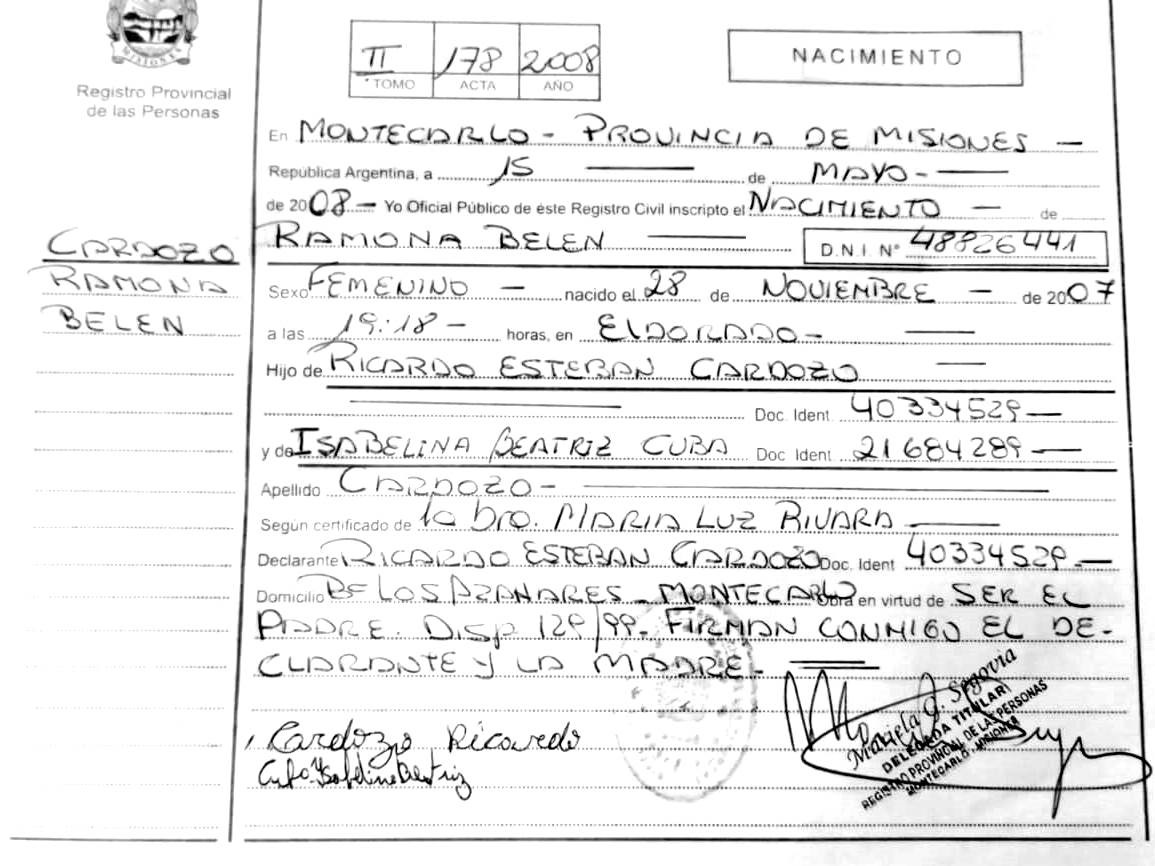 MISIONES
Registro Provincial
de las Personas
II 178 2008
TOMO ACTA AÑO
NACIMIENTO
En MONTECARLO - PROVINCIA DE MISIONES —
República Argentina, a 15 — de MAYO - —
de 2008 — Yo Oficial Público de éste Registro Civil inscripto el NACIMIENTO — de
CARDOZO
RAMONA
BELEN
RAMONA BELEN — D.N.I. N° 48826441
Sexo FEMENINO — nacido el 28 de NOVIEMBRE — de 2007
a las 19:18 - horas, en ELDORADO - —
Hijo de RICARDO ESTEBAN CARDOZO —
— Doc. Ident 40334529 —
y de ISABELINA BEATRIZ CUBA Doc. Ident 21684289 —
Apellido CARDOZO - —
Según certificado de la Dra. MARIA LUZ RIVARA —
Declarante RICARDO ESTEBAN CARDOZO Doc. Ident 40334529 —
Domicilio Bº LOS AZAHARES - MONTECARLO Obra en virtud de SER EL
PADRE. DISP 129/99. FIRMAN CONMIGO EL DE-
CLARANTE Y LA MADRE -
Cardozo Ricardo
Mariela G. Segovia
DELEGADA TITULAR
REGISTRO PROVINCIAL DE LAS PERSONAS
MONTECARLO - MISIONES